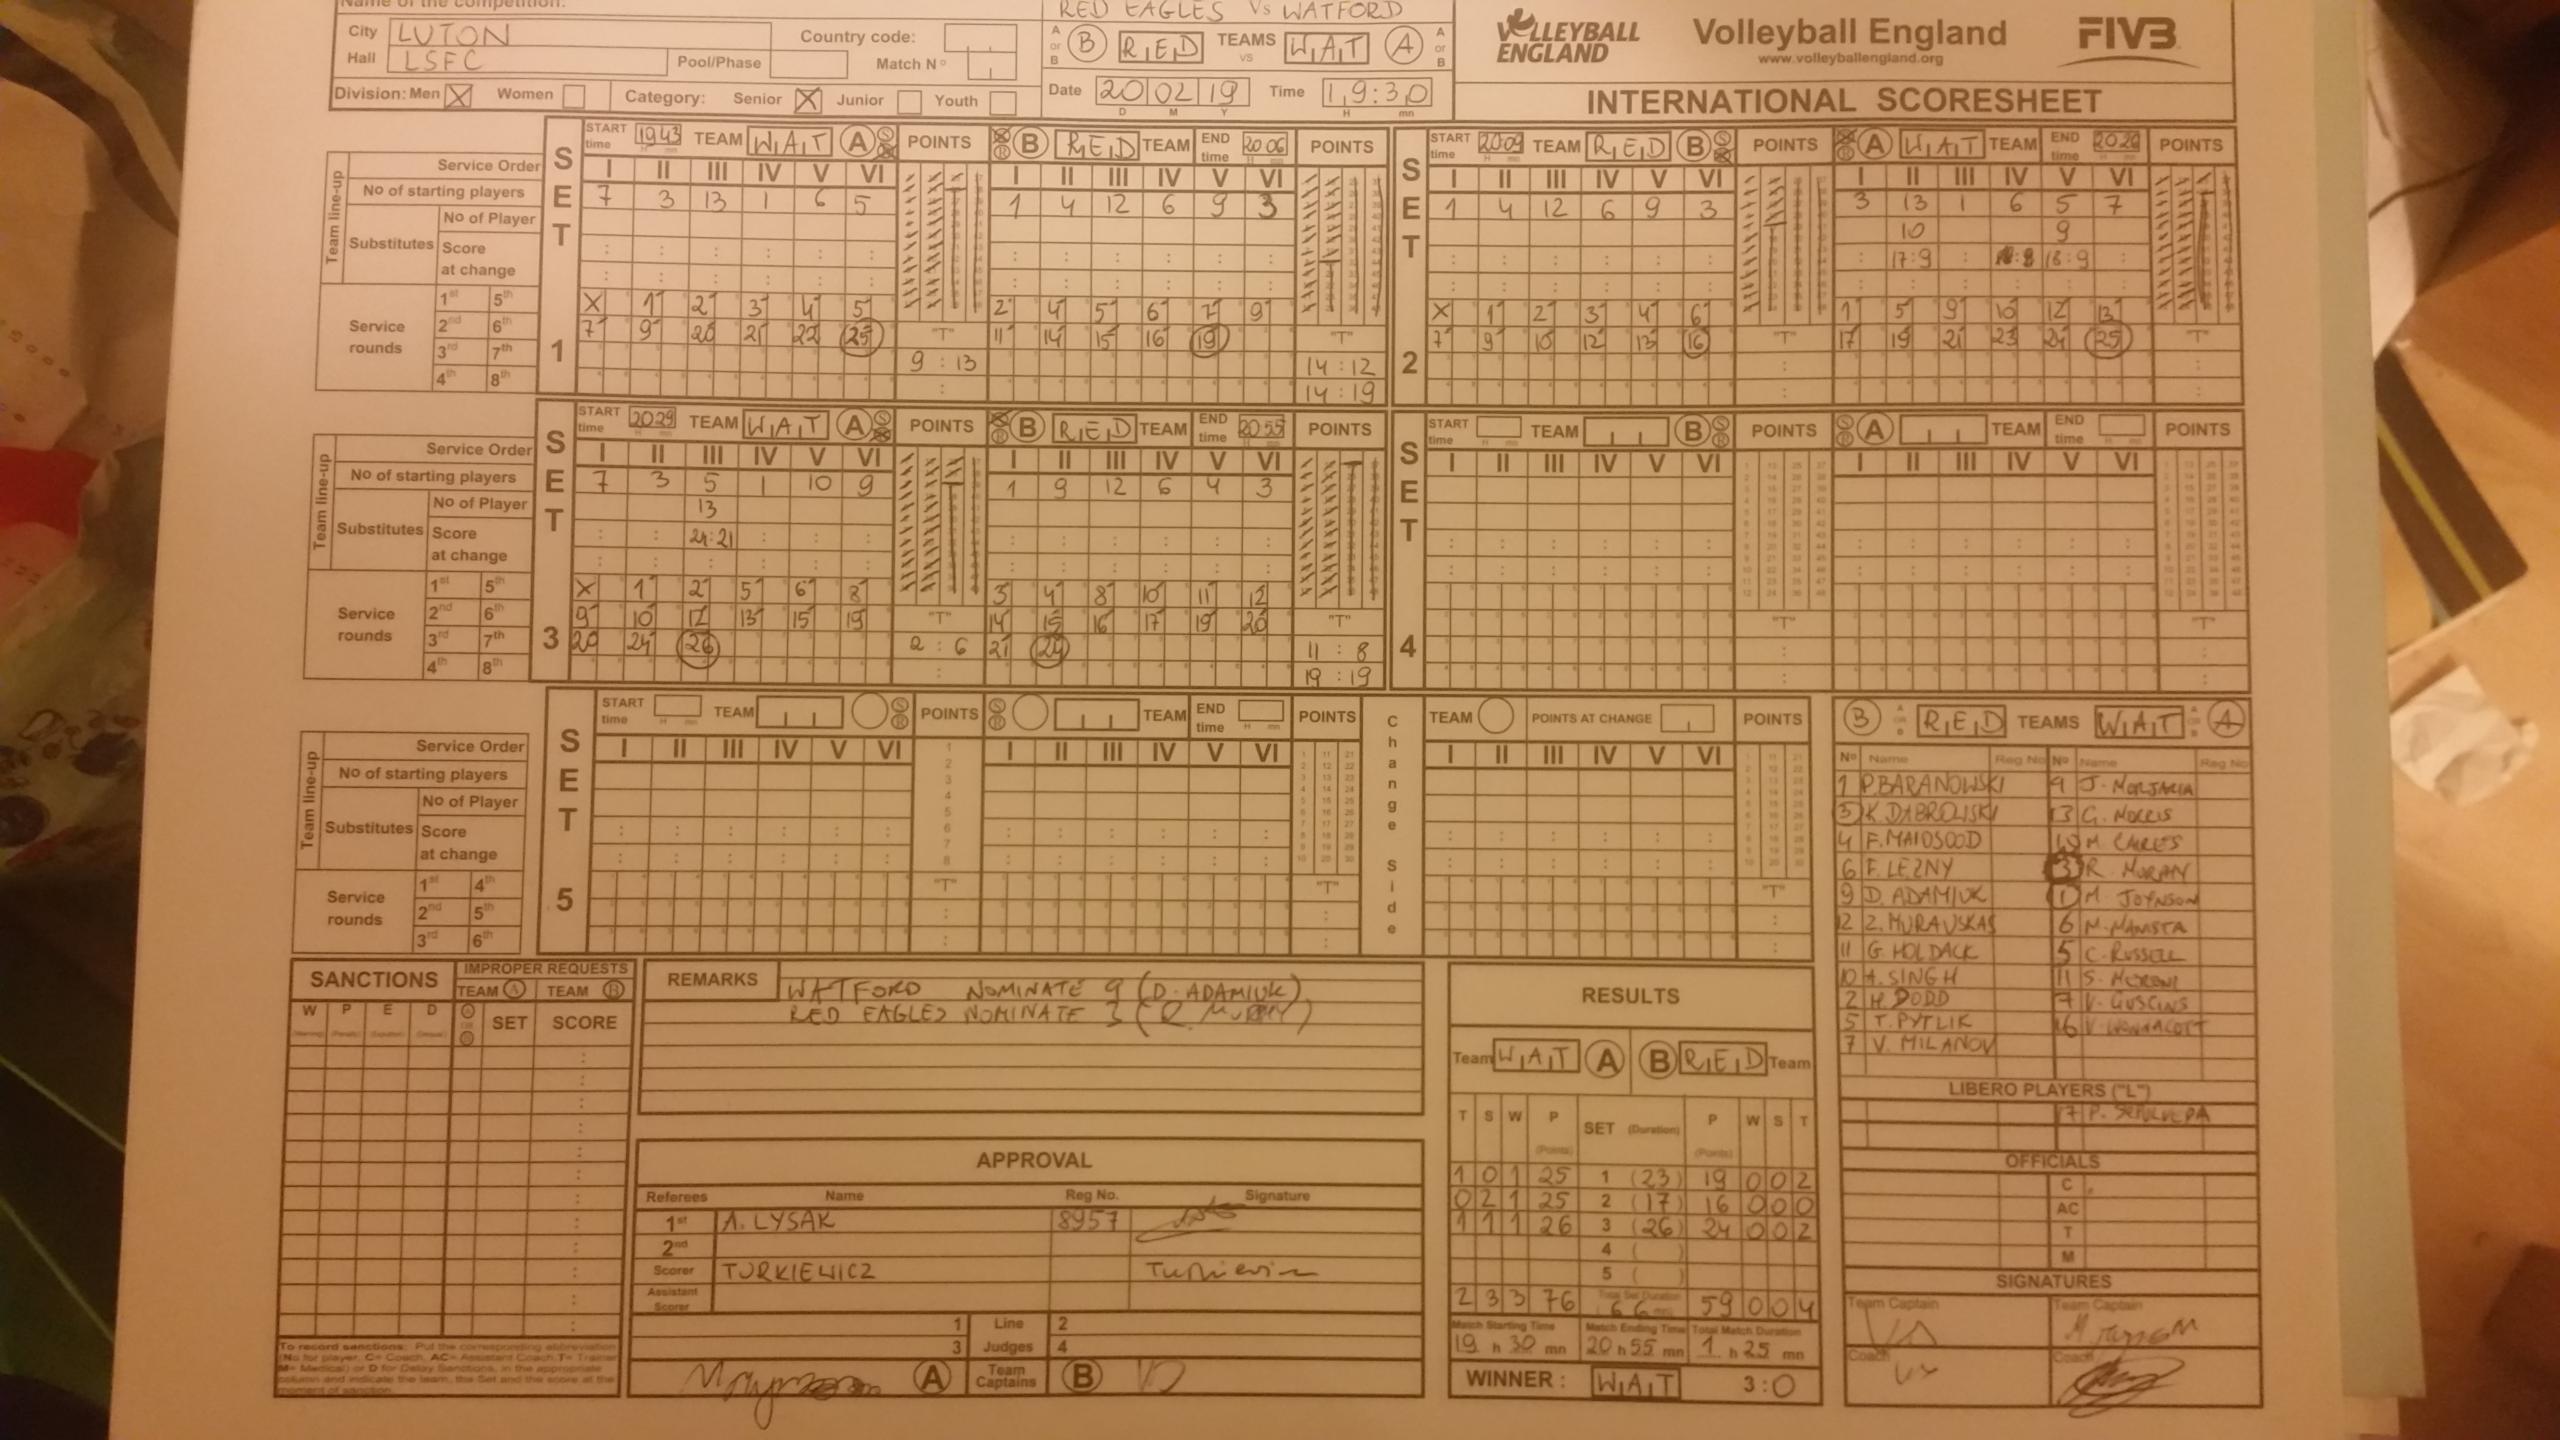 Name of the competition:
RED EAGLES Vs WATFORD
City LUTON Country code:
Hall LSFC Pool/Phase Match Nº
Division: Men X Women Category: Senior X Junior Youth
A or B B RED TEAMS VS WAT A A or B
Date 20 02 19 Time 19:30
D M Y H mn
VOLLEYBALL ENGLAND
Volleyball England
www.volleyballengland.org
FIVB
INTERNATIONAL SCORESHEET
Team line-up
Service Order
No of starting players
Substitutes
No of Player
Score at change
Service rounds
1st 5th
2nd 6th
3rd 7th
4th 8th
SET 1
START time 1943 TEAM WAT A S POINTS
I II III IV V VI
7 3 13 1 6 5
X 1 2 3 4 5
7 9 20 21 22 25
"T"
9 : 13
B RED TEAM END time 2006 POINTS
I II III IV V VI
1 4 12 6 9 3
2 4 5 6 7 9
11 14 15 16 19
"T"
14 : 12
14 : 19
SET 2
START time 2009 TEAM RED B S POINTS
I II III IV V VI
1 4 12 6 9 3
X 1 2 3 4 6
7 9 10 12 13 16
"T"
A WAT TEAM END time 2026 POINTS
I II III IV V VI
3 13 1 6 5 7
10 9
17:9 18:9
1 5 9 10 12 13
17 19 21 23 24 25
"T"
Team line-up
Service Order
No of starting players
Substitutes
No of Player
Score at change
Service rounds
1st 5th
2nd 6th
3rd 7th
4th 8th
SET 3
START time 2029 TEAM WAT A POINTS
I II III IV V VI
7 3 5 1 10 9
13
24:21
X 1 2 5 6 8
9 10 12 13 15 19
20 24 26
"T"
2 : 6
B RED TEAM END time 2055 POINTS
I II III IV V VI
1 9 12 6 4 3
3 4 8 10 11 12
14 15 16 17 19 20
21 24
"T"
11 : 8
19 : 19
SET 4
START time TEAM B S R POINTS
I II III IV V VI
"T"
S R A TEAM END time POINTS
I II III IV V VI
"T"
Team line-up
Service Order
No of starting players
Substitutes
No of Player
Score at change
Service rounds
1st 4th
2nd 5th
3rd 6th
SET 5
START time TEAM S R POINTS
I II III IV V VI
"T"
S R TEAM END time POINTS
I II III IV V VI
"T"
Change Side
TEAM POINTS AT CHANGE POINTS
I II III IV V VI
"T"
B RED TEAMS WAT A
Nº Name Reg No Nº Name Reg No
1 P.BARANOWSKI 9 J. MORJARIA
3 K.DABROWSKI 13 G. NORRIS
4 F.MAIDSOOD 10 M. CAIRES
6 F. LEZNY 3 R. MORAN
9 D. ADAMIUK 1 M. JOYNSON
12 Z. MURAUSKAS 6 M. MAMSTA
11 G. HOLDACK 5 C. RUSSELL
10 A. SINGH 11 S. MERONI
2 H. DODD 7 V. GUSCINS
5 T. PYTLIK 16 V. WONNACOTT
7 V. MILANOV
LIBERO PLAYERS ("L")
17 P. SEPULVEDA
OFFICIALS
C
AC
T
M
SIGNATURES
Team Captain Team Captain
Coach Coach
SANCTIONS
IMPROPER REQUESTS
TEAM A TEAM B
W P E D A or B SET SCORE
To record sanctions: Put the corresponding abbreviation
(No for player, C= Coach, AC= Assistant Coach, T= Trainer
M= Medical) or D for Delay Sanctions, in the appropriate
column and indicate the team, the Set and the score at the
moment of sanction.
REMARKS
WATFORD NOMINATE 9 (D. ADAMIUK)
RED EAGLES NOMINATE 3
APPROVAL
Referees Name Reg No. Signature
1st A. LYSAK 8957
2nd
Scorer TURKIEWICZ Turkiewicz
Assistant Scorer
1 Line 2
3 Judges 4
A Team Captains B
RESULTS
Team WAT A B RED Team
T S W P (Points) SET (Duration) P (Points) W S T
1 0 1 25 1 (23) 19 0 0 2
0 2 1 25 2 (17) 16 0 0 0
1 1 1 26 3 (26) 24 0 0 2
4 ( )
5 ( )
2 3 3 76 Total Set Duration 66 mn 59 0 0 4
Match Starting Time Match Ending Time Total Match Duration
19 h 30 mn 20 h 55 mn 1 h 25 mn
WINNER : WAT 3:0